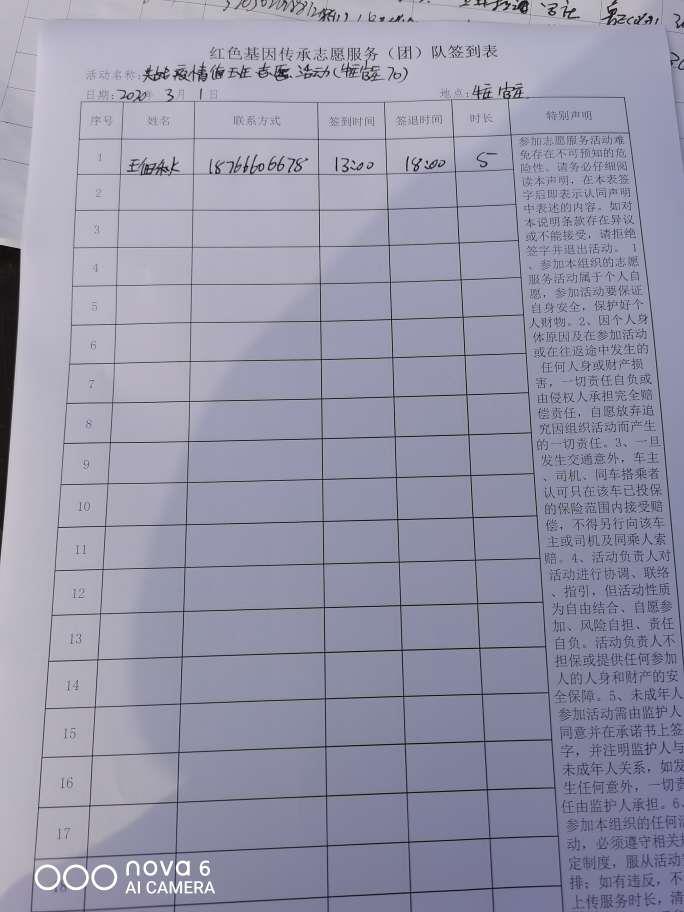 红色基因传承志愿服务（团）队签到表
活动名称：疫情值班志愿活动
日期：2020年 3月 1日 地点：
序号 姓名 联系方式 签到时间 签退时间 时长 特别声明
1 18766606678 13:00 18:00 5
2
3
4
5
6
7
8
9
10
11
12
13
14
15
16
17
18
参加志愿服务活动难
免存在不可预知的危
险性。请务必仔细阅
读本声明，在本表签
字后即表示认同声明
中表述的内容。如对
本说明条款存在异议
或不能接受，请拒绝
签字并退出活动。 1
、参加本组织的志愿
服务活动属于个人自
愿，参加活动要保证
自身安全，保护好个
人财物。2、因个人身
体原因及在参加活动
或在往返途中发生的
任何人身或财产损
害，一切责任自负或
由侵权人承担完全赔
偿责任，自愿放弃追
究因组织活动而产生
的一切责任。3、一旦
发生交通意外，车主
、司机、同车搭乘者
认可只在该车已投保
的保险范围内接受赔
偿，不得另行向该车
主或司机及同乘人索
赔。4、活动负责人对
活动进行协调、联络
、指引，但活动性质
为自由结合、自愿参
加、风险自担、责任
自负。活动负责人不
担保或提供任何参加
人的人身和财产的安
全保障。5、未成年人
参加活动需由监护人
同意并在承诺书上签
字，并注明监护人与
未成年人关系，如发
生任何意外，一切责
任由监护人承担。6、
参加本组织的任何活
动，必须遵守相关规
定制度，服从活动
排；如有违反，不
上传服务时长，清
nova 6
AI CAMERA